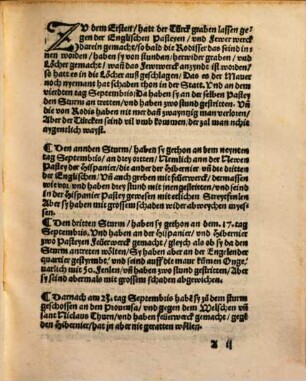 ZV dem Ersten / hatt der Türck graben lassen ge
gen der Englischen Pasteyen / vnd Fewer werck
darein gemacht / so bald die Rodisser das seind in
nen worden / haben sy von stunden / herwider graben / vnd
Löcher gemacht / wañ das Fewrwerck anzynde ist worden /
so hatt es in die Löcher auß geschlagen / Das es der Mauer
noch nyemant hat schaden thon in der Statt. Vnd an dem
vierdten tag Septembris / Da haben sy an der selben Pasteyen
den Sturm an tretten / vnd haben zwo stund gestritten. Vñ
die von Rodis haben nit mer dañ zwayntzig man verloren /
Aber der Türcken seind vil vmb kommen / der zal man nicht
aygentlich wayst.
¶ Den anndern Sturm / haben sy gethon an dem neynten
tag Septembris / an drey ortten / Nemlich ann der Newen
Pastey der Hispanier / die ander der Hibernier vñ die dritten
der Englischen. Vñ auch geben mit feüerwerck / dermassen
wie vor / vnd haben drey stund mit jnen gestritten / vnd seind
in der Hispanier Pastey gewesen mit ettlichen Streytfanlen
Aber sy haben mit grossem schaden wider abweychen
¶ Den dritten Sturm / haben sy gethon an dem .17. tag
Septembris. Vnd haben an der Hispanier / vnd Hibernier
zwo Pasteyen Feüerwerck gemacht / gleych als ob sy da den
Sturm antretten wölten / Sy haben aber an der Engelender
quartier gestyrmbt / vnd seind auff die maur kömen
närlich mit 50. Fenlen / vñ haben zwo stund gestritten / Aber
sy seind abermals mit grossem schaden abgewichen.
¶ Darnach am 23. tag Septembris habẽ sy zů dem sturm
geschossen an den Prouentza / vnd gegen dem Welschen vñ
sant Niclaus Thurn / vnd haben feüerwerck gemacht / gegẽ
den Hibernier / hat jn aber nie geratten wöllen.
A ij